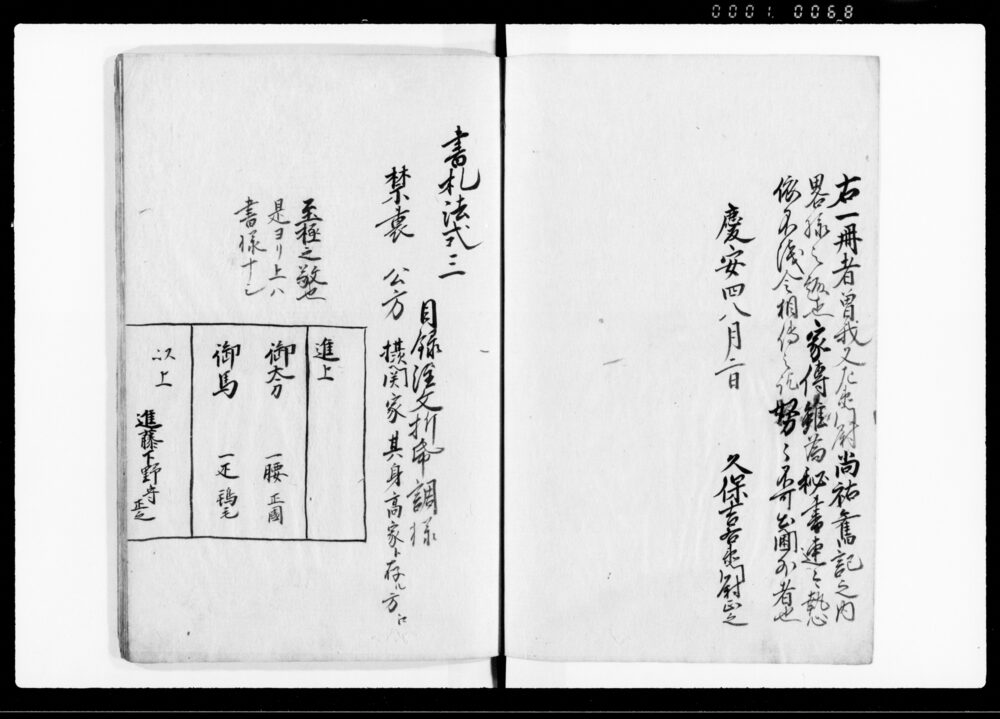 0001 0068
右一冊者曽我又左衛門尉尚祐舊記之内
畧様之派也家傳雖為秘書連々執心
依不浅令相傳之訖努々不可出圃外者也
慶安四八月二日
久保吉右衛門尉正之
書札法式三
目録注文折帋調様
禁裏 公方 摂関家其身高家ト存ル方ニハ
至極之敬也
是ヨリ上ハ
書様ナシ
進上
御太刀 一腰 正國
御馬 一疋 鴾毛
以上
進藤下野守
正之